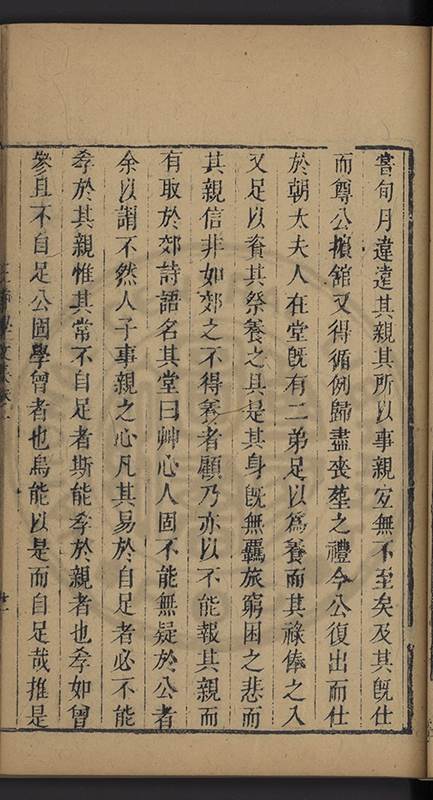 嘗旬月違遠其親其所以事親宜無不至矣及其旣仕
而尊公損舘又得循例歸盡喪塟之禮今公復出而仕
於朝太夫人在堂旣有二弟足以爲養而其祿俸之入
又足以資其祭養之具是其身旣無羈旅窮困之悲而
其親信非如郊之不得養者顧乃亦以不能報其親而
有取於郊詩語名其堂曰艸心人固不能無疑於公者
余以謂不然人子事親之心凡其易於自足者必不能
孝於其親惟其常不自足者斯能孝於親者也孝如曾
參且不自足公固學曾者也烏能以是而自足哉推是